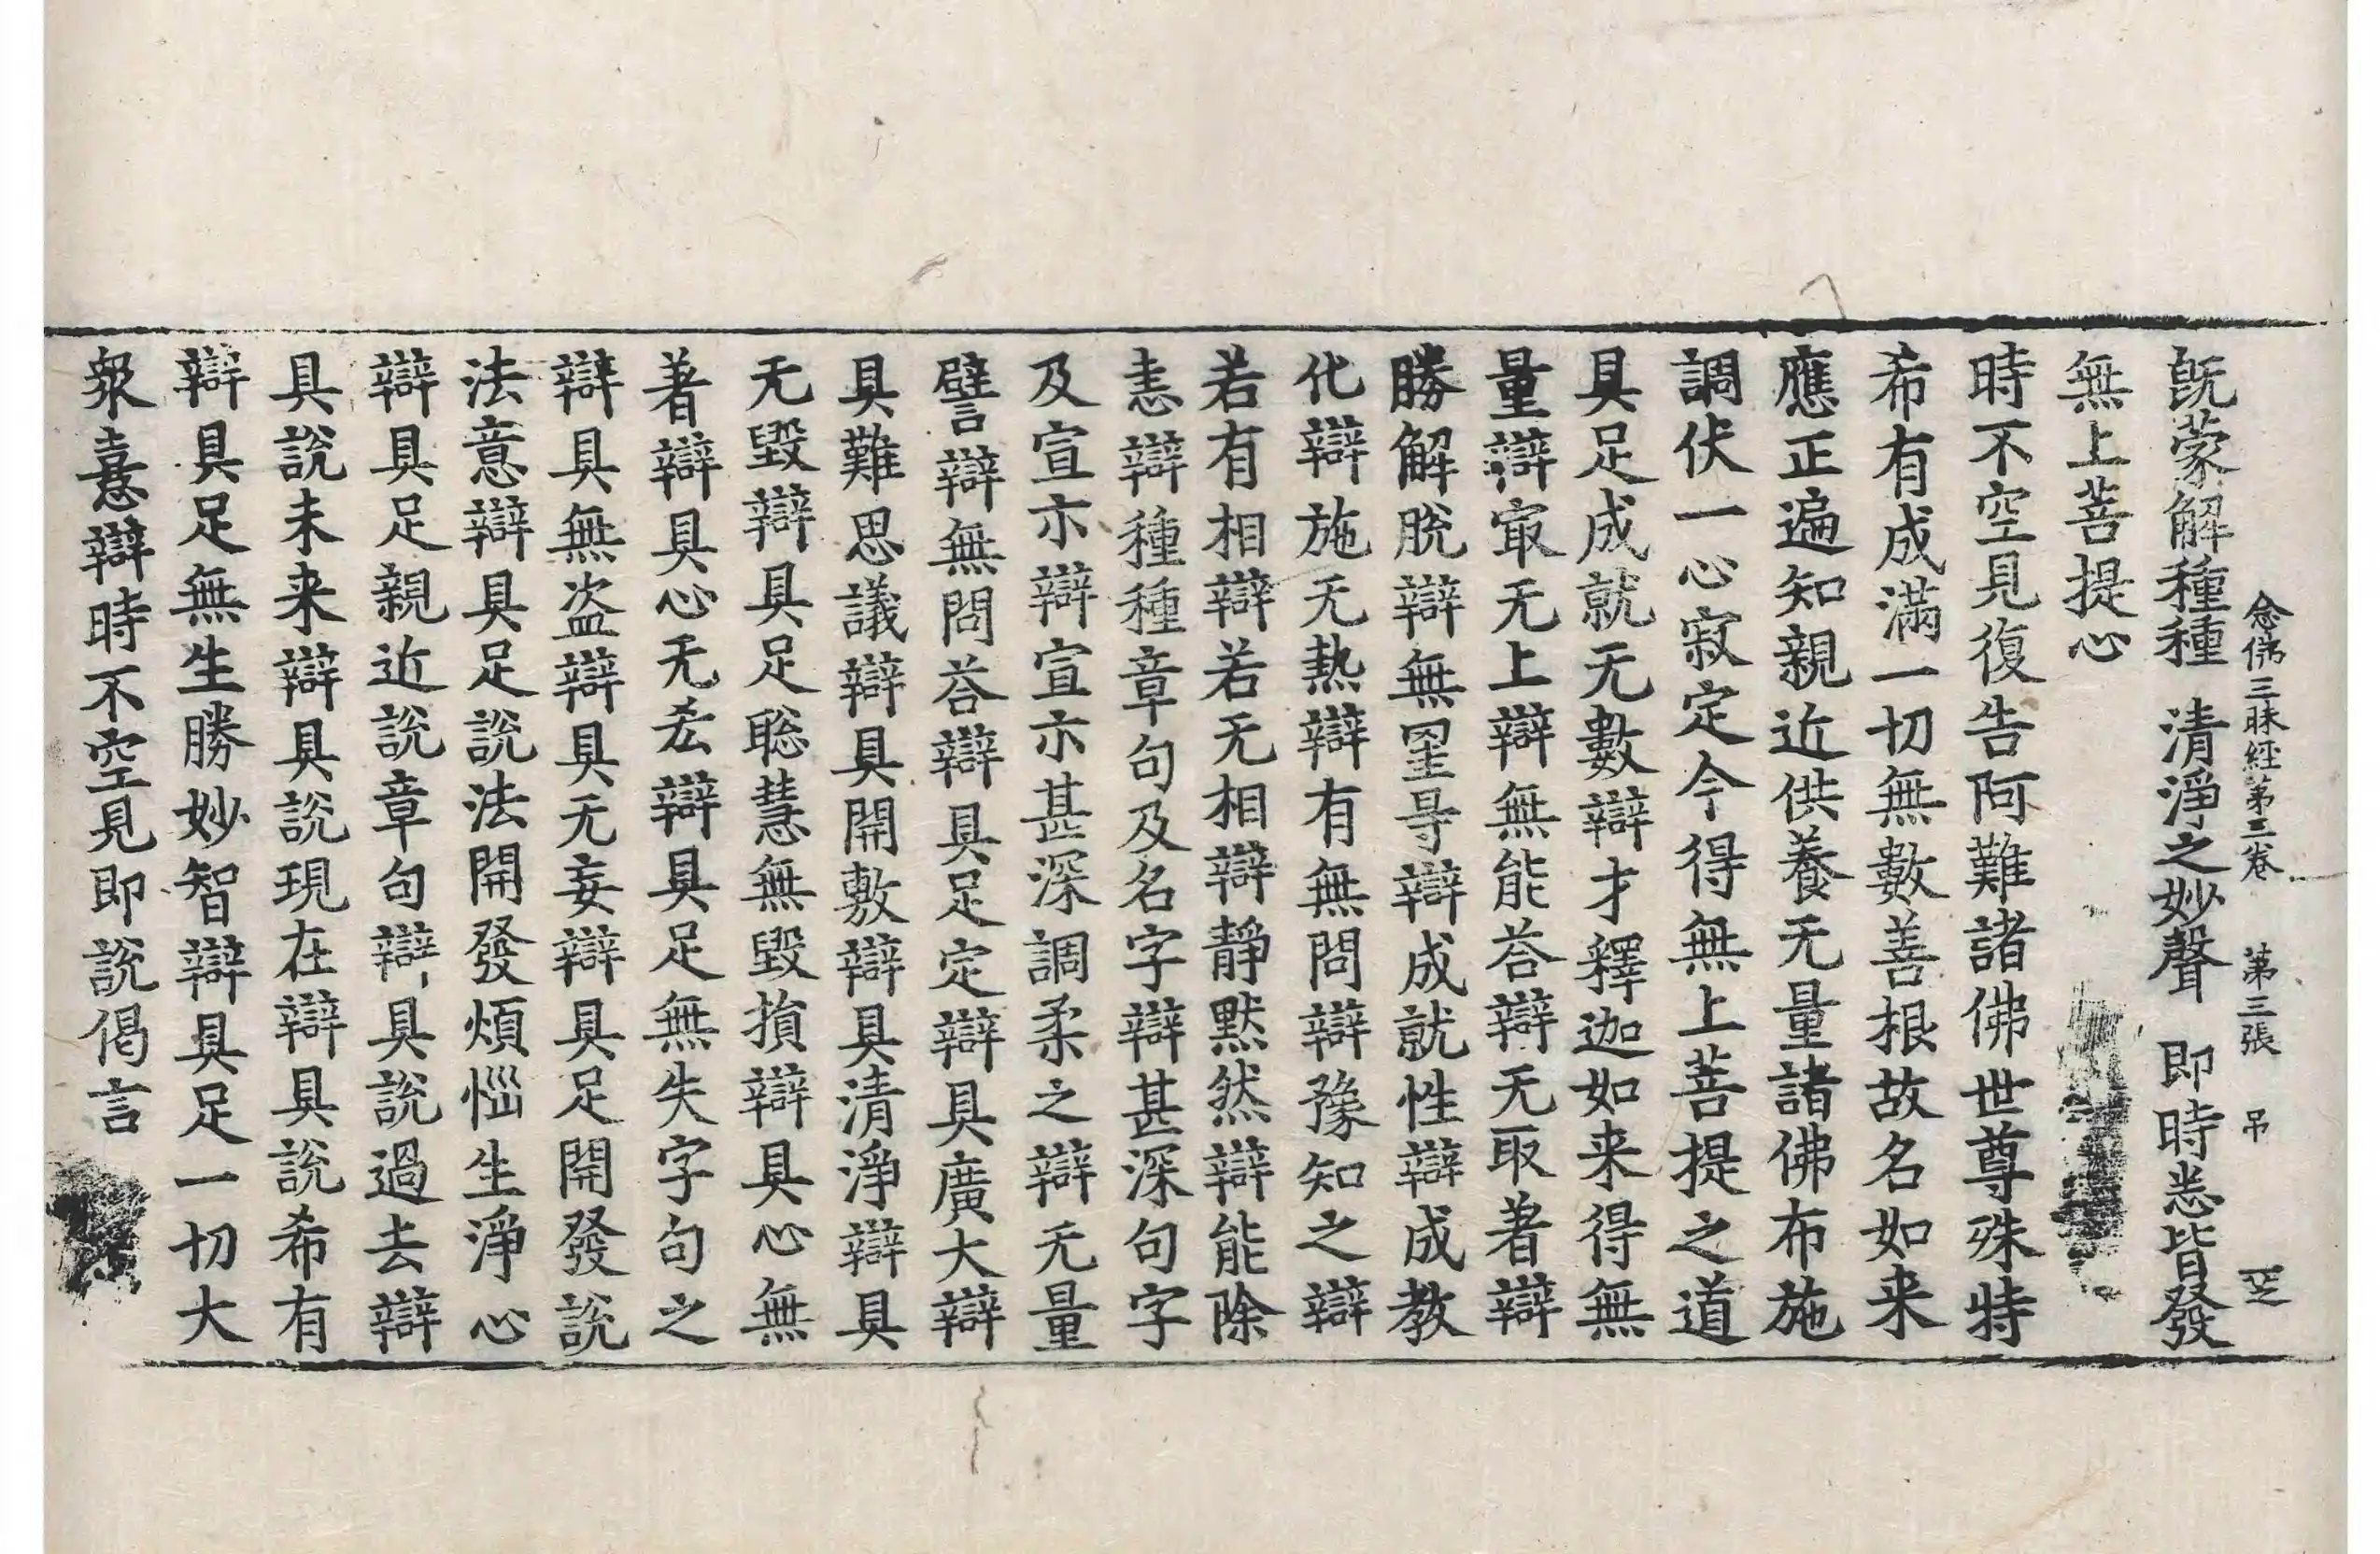 念佛三昧經第三卷 第三張 弔
旣蒙解種種 清淨之妙聲 即時悉皆發
無上菩提心
時不空見復告阿難諸佛世尊殊特
希有成滿一切無數善根故名如来
應正遍知親近供養无量諸佛布施
調伏一心寂定今得無上菩提之道
具足成就无數辯才釋迦如来得無
量辯㝡无上辯無能荅辯无取著辯
勝解脫辯無罣㝵辯成就性辯成教
化辯施无熱辯有無問辯豫知之辯
若有相辯若无相辯靜默然辯能除
恚辯種種章句及名字辯甚深句字
及宣示辯宣示甚深調柔之辯无量
譬辯無問荅辯具足定辯具廣大辯
具難思議辯具開敷辯具清淨辯具
无毀辯具足聡慧無毀損辯具心無
著辯具心无厺辯具足無失字句之
辯具無盗辯具无妄辯具足開發說
法意辯具足說法開發煩惱生淨心
辯具足親近說章句辯具說過去辯
具說未来辯具說現在辯具說希有
辯具足無生勝妙智辯具足一切大
衆憙辯時不空見即說偈言